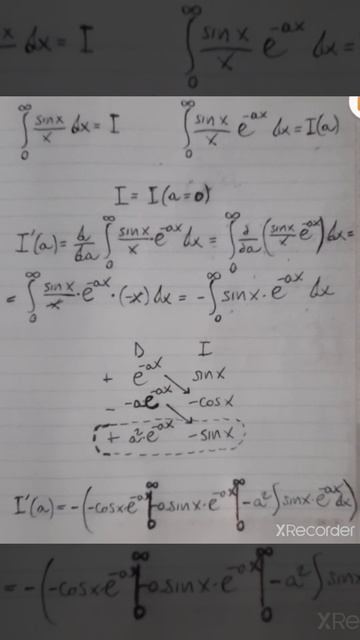 x dx = I ∫₀^∞ sinx/x e^-ax dx =
∫₀^∞ sinx/x dx = I ∫₀^∞ sinx/x e^-ax dx = I(a)
I = I(a=0)
I'(a) = d/da ∫₀^∞ sinx/x · e^-ax dx = ∫₀^∞ ∂/∂a (sinx/x e^-ax) dx =
= ∫₀^∞ sinx/x · e^-ax · (-x) dx = -∫₀^∞ sinx · e^-ax dx
D I
+ e^-ax sinx
- -ae^-ax -cosx
+ a²·e^-ax -sinx
I'(a) = -(-cosx·e^-ax |₀^∞ -a sinx·e^-ax |₀^∞ -a² ∫ sinx·e^-ax dx)
XRecorder
= -(-cosx·e^-ax |₀^∞ -a sinx·e^-ax |₀^∞ -a² ∫ sinx
XRe